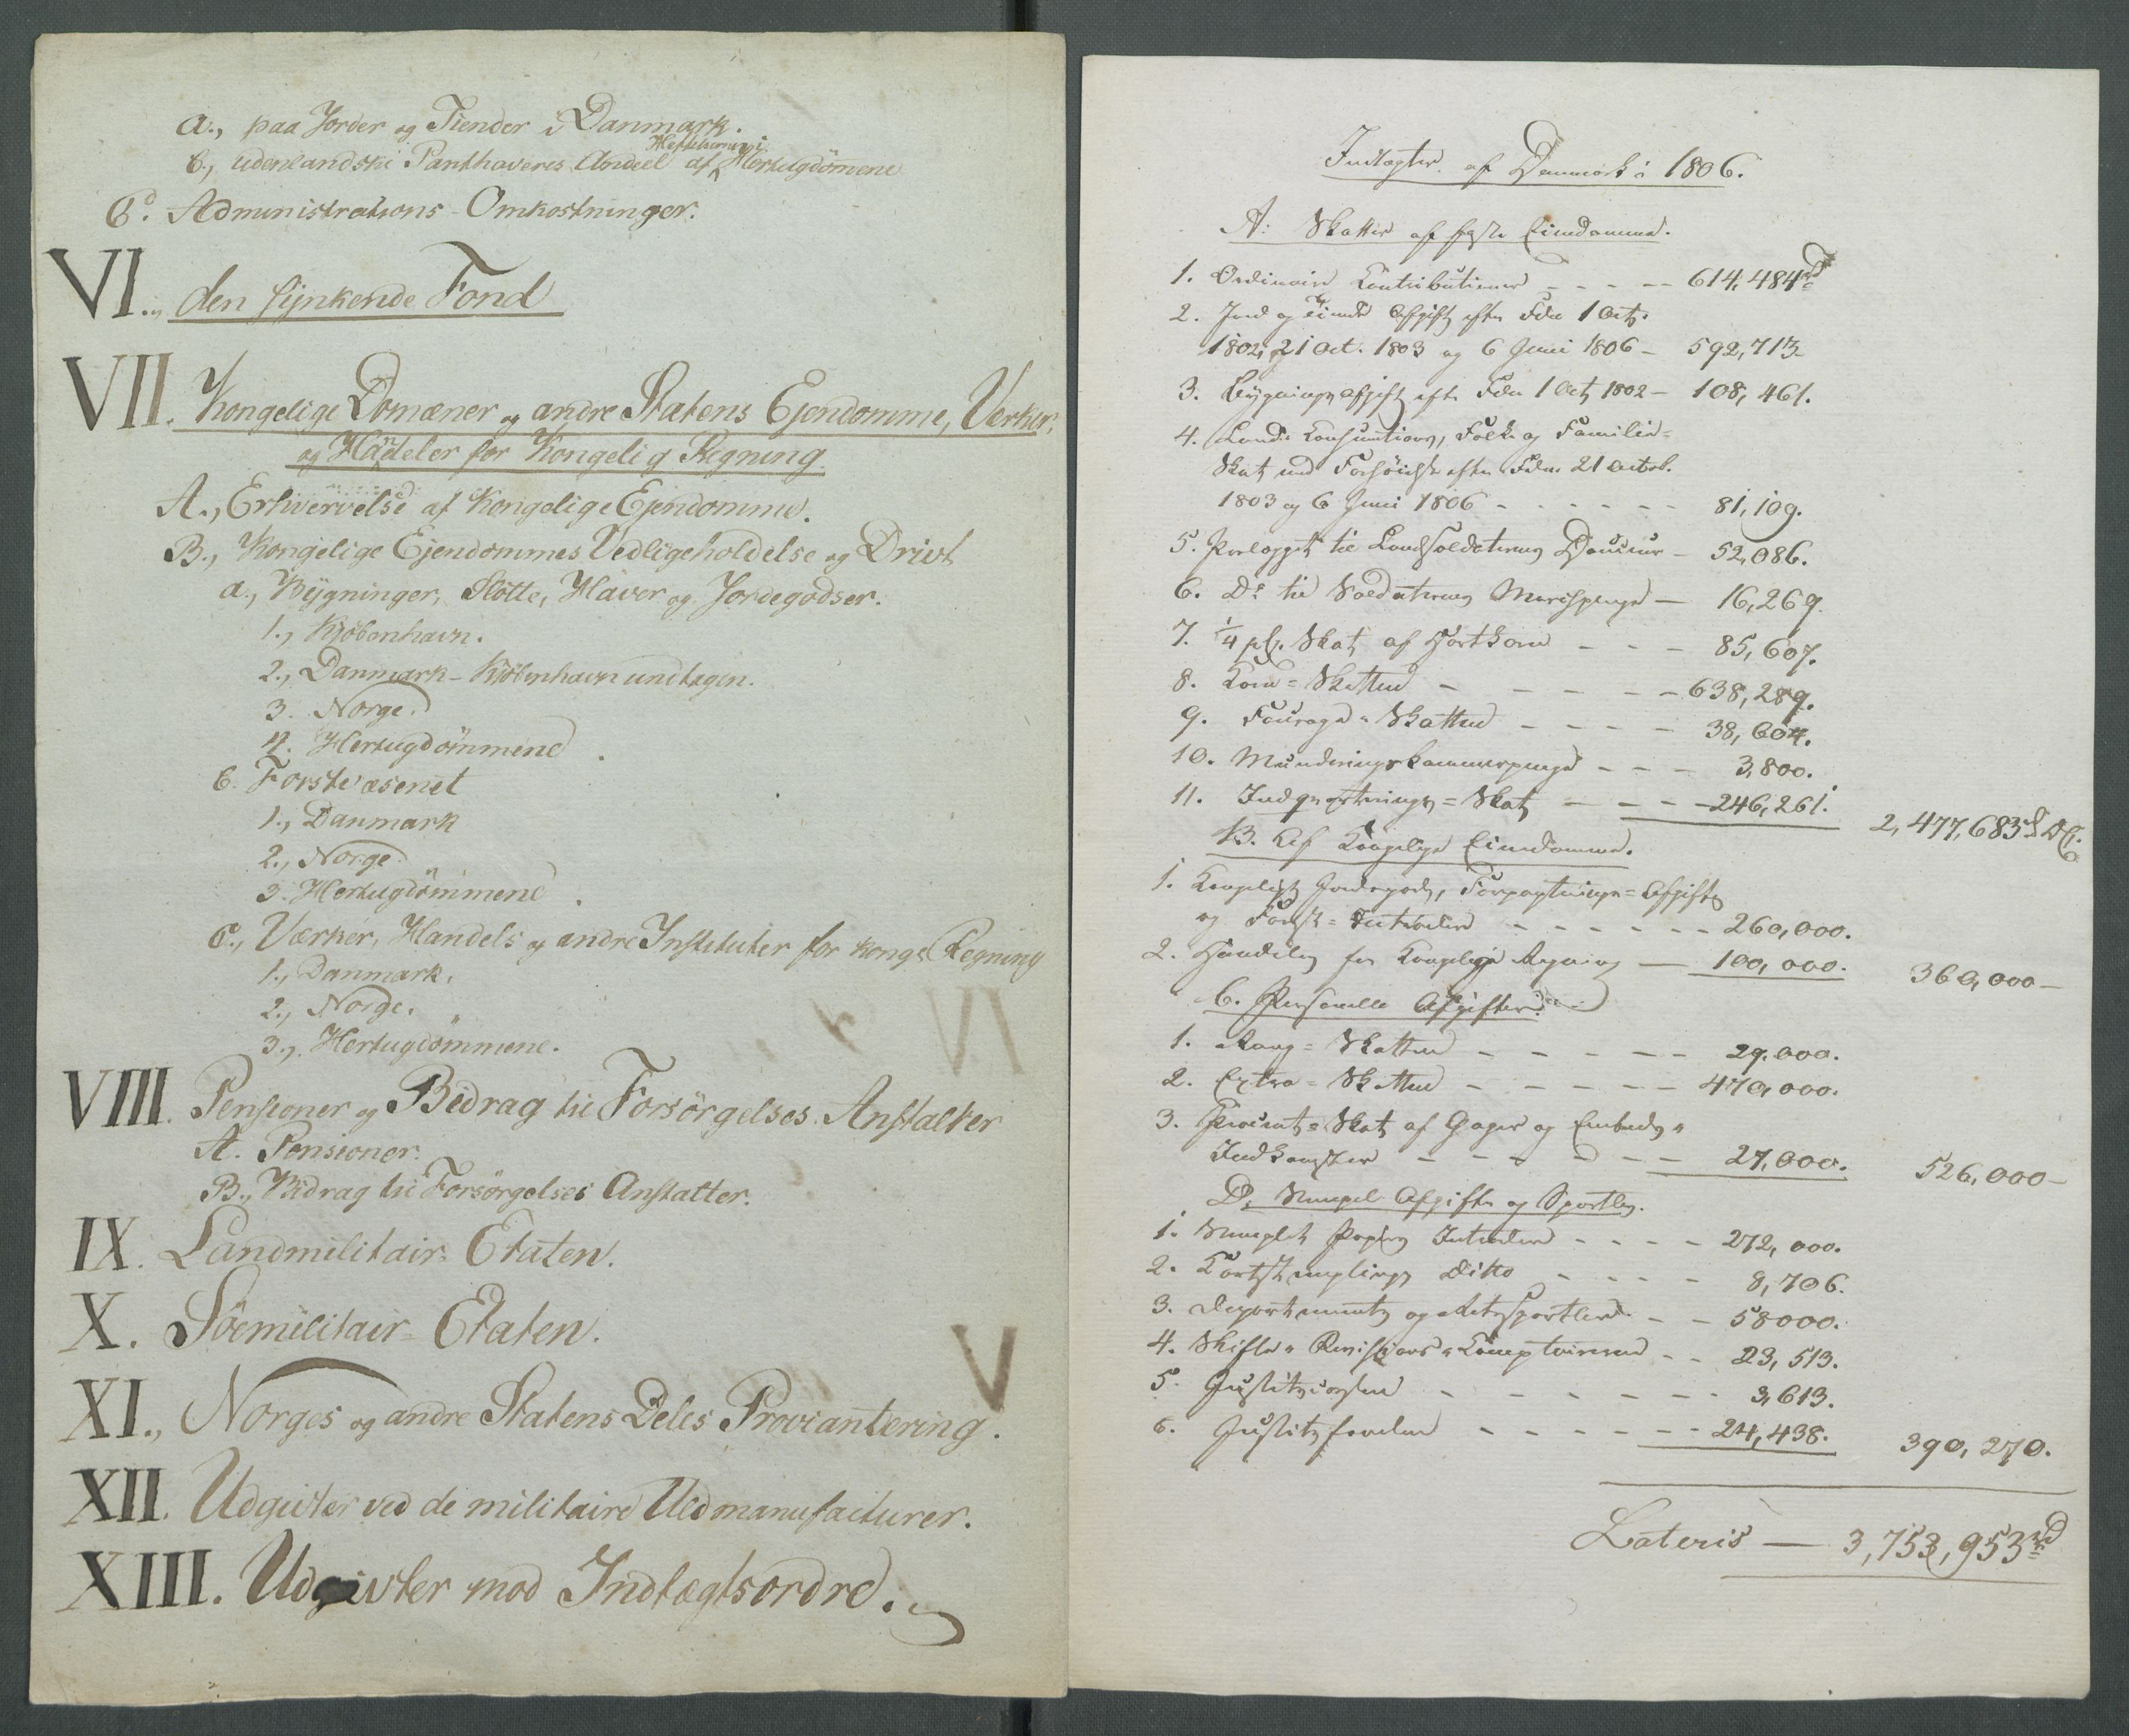 a., paa Jorder og Tiender i Danmark.
b., udenlandske Panthaveres Andeel af Hertugdömene
C. Administrations-Omkostninger.
VI., den synkende Fond
VII. Kongelige Domæner og andre Statens Ejendomme, Værker,
og Handeler for Kongelig Regning.
A., Erhvervelse af Kongelige Ejendomme.
B., Kongelige Ejendommes Vedligeholdelse og Drivt
a., Bÿgninger, Slotte, Haver og Jordegodser.
1., Kiöbenhavn.
2., Danmark - Kiöbenhavn undtagen.
3. Norge.
4. Hertugdömmene
b. Forstvæsenet
1., Danmark
2., Norge
3. Hertugdömmene
c., Værker, Handels og andre Instituter for Konge Regning
1., Danmark.
2., Norge.
3., Hertugdömmene.
VIII. Pensioner og Bidrag til Forsörgelses Anstalter
A. Pensioner.
B., Bidrag til Forsörgelses Anstalter.
IX. Landmilitair-Etaten.
X. Söemilitair-Etaten.
XI., Norges og andre Statens Deles Proviantering.
XII. Udgivter ved de militaire Uldmanufacturer.
XIII. Udgivter mod Indtægtsordre.
Indtægter af Danmark i 1806.
A: Skatter af faste Eiendomme.
1. Ordinaire Contributioner - - - - 614,484 rd
2. Jord og Tiende Afgift efter Fdn 1 Oct.
1802, 21 Oct. 1803 og 6 Juni 1806 - 592,713
3. Bÿgningsafgift efter Fdn 1 Oct 1802 - 108,461.
4. Lands Consumtions, Folke og Familie=
Skat med Forhöielse efter Fdn. 21 Octob.
1803 og 6 Juni 1806 - - - - - 81,109.
5. Paalægget til Landsoldaternes Douceur - 52,086.
6. Do til Soldaternes Marschpenge - 16,269.
7. 1/4 pC. Skat af Hartkorn - - - 85,607.
8. Korn=Skatten - - - - - 638,289.
9. Fourage=Skatten - - - - 38,604.
10. Munderingskammerpenge - - - 3,800.
11. Indqvarterings=Skat - - - - 246,261.
2,477,683 rd DC.
B. Af Kongelige Eiendomme.
1. Kongeligt Jordegods, Forpagtnings=Afgifter
og Forst=Intrader - - - - - - 260,000.
2. Handelen for Kongelig Regning - 100,000.
360,000 -
C. Personelle Afgifter.
1. Rang=Skatten - - - - - 29,000.
2. Extra=Skatten - - - - - 470,000.
3. Procent=Skat af Gager og Embeds=
Indkomster - - - - - - 27,000.
526,000 -
D, Stempel Afgifter og Sportler.
1. Stemplet Papiirs Intrader - - - - 272,000.
2. Kortstemplings Ditto - - - - 8,706.
3. Departements og Retssportlerne - - 58000.
4. Skifte=Revisions=Comptoirerne - - 23,513.
5. Justitscassen - - - - - - 3,613.
6. Justitsfonden - - - - - - 24,438.
390,270.
Lateris - 3,753,953 rd
V